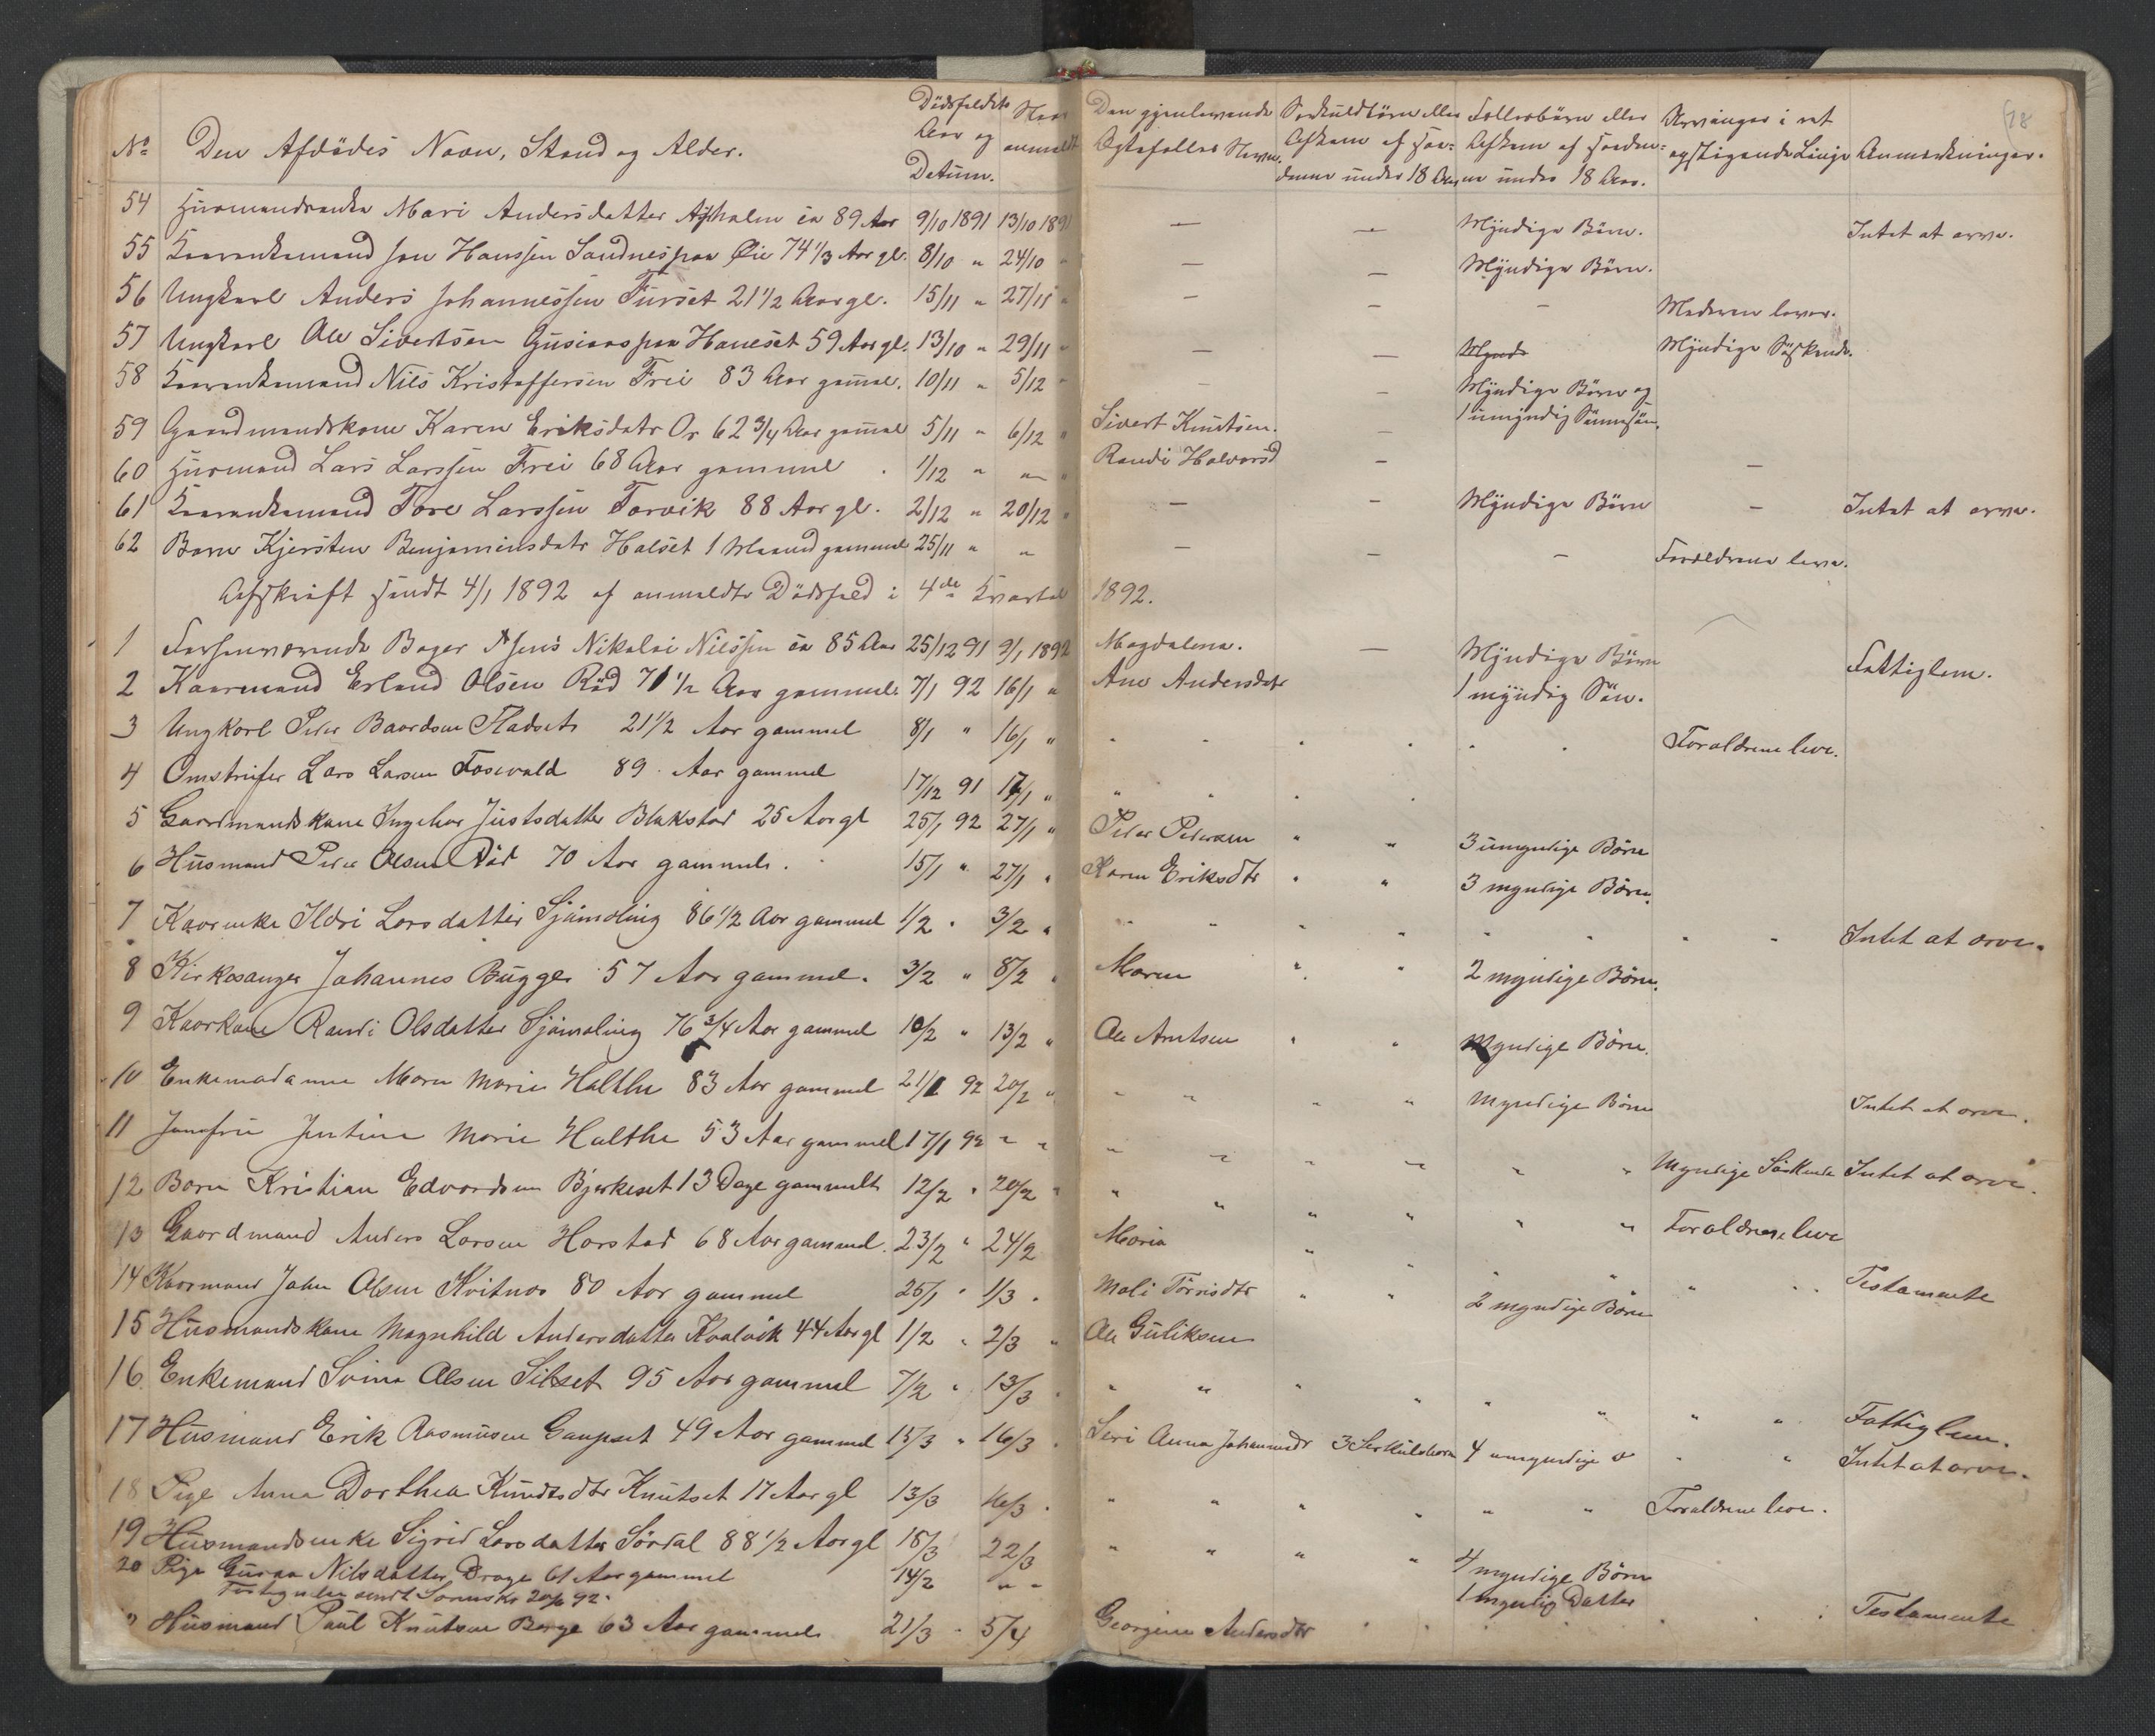 18
No Den Afdödes Navn, Stand og Alder. Dödsfaldets Aar og Datum. Naar anmeldt Den gjenlevende Ægtefælles Navn. Særkuldbörn eller Afkom af saadanne under 18 Aar Fællesbörn eller Afkom af saadanne under 18 Aar. Arvinger i ret opstigende Linje Anmærkninger.
54 Huusmandsenke Mari Andersdatter ca 89 Aar 9/10 1891 13/10 1891 — — Myndige Börn. Intet at arve.
55 Kaarenkemand Jon Hanssen Sandnes paa Öie 74 1/3 Aar gl. 8/10 " 24/10 " — — Myndige Börn.
56 Ungkarl Anders Johannessen Furset 21 1/2 Aar gl. 15/11 " 27/11 " — — — Moderen lever.
57 Ungkarl Ole Sivertsen Gusiaas paa Haneset 59 Aar gl. 13/10 " 29/11 " — — Mynd Myndige Söskende.
58 Kaarenkemand Nils Kristoffersen Frei 83 Aar gammel. 10/11 " 5/12 " — — Myndige Börn og
1 umyndig Sönnesön.
59 Gaardmandskone Karen Eriksdatr Or 62 3/4 Aar gammel 5/11 " 6/12 " Sivert Knutsen. —
60 Husmand Lars Larssen Frei 68 Aar gammel . 1/12 " " " Randi Halvorsd — —
61 Kaarenkemand Tore Larssen Torvik 88 Aar gl. 2/12 " 20/12 " — — Myndige Börn — Intet at arve.
62 Barn Kjersten Benjaminsdatr Halset 1 Maaned gammel 25/11 " " — — — Forældrene leve.
Afskrift sendt 4/1 1892 af anmeldte Dödsfald i 4de Kvartal
1892.
1 Forhenværende Bager Jens Nikolai Nilssen ca 85 Aar 25/12 91 2/1 1892 Magdalena. — Myndige Börn Fattiglem.
2 Kaarmand Erland Olsen Röd 71 1/2 Aar gammel 7/1 92 16/1 " Ane Andersdatr 1 myndig Sön.
3 Ungkarl Peder Baardsen Fladset 21 1/2 Aar gammel 8/1 " 16/1 " " " " " " " Forældrene leve.
4 Lars Larsen Fosevold 89 Aar gammel 17/12 91 17/1 " " " " "
5 Gaardmandskone Ingebor Justsdatter Blakstad 25 Aar gl 25/1 92 27/1 " Peder Pedersen " " 3 umyndige Börn
6 Husmand Peder Olsen Röd 70 Aar gammel. 15/1 " 27/1 " Karen Eriksdtr " " 3 myndige Börn.
7 Kaarenke Ildri Larsdatter Sjömoling 86 1/2 Aar gammel 1/2 " 3/2 " " " " " " " " " Intet at arve.
8 Kirkesanger Johannes Bugge 57 Aar gammel. 3/2 " 8/2 " Maren " " 2 myndige Börn.
9 Kaarkone Randi Olsdatter Sjömoling 76 3/4 Aar gammel 10/2 " 13/2 " Ole Arntsen " " Myndige Börn.
10 Enkemadame Maren Marie Halthe 83 Aar gammel 21/1 92 20/2 " " " " " Myndige Börn Intet at arve.
11 Jomfru Justine Marie Halthe 53 Aar gammel 17/1 92 " " " " " " " " Myndige Söskende Intet at arve.
12 Barn Kristian Edvardsen Bjerkeset 13 Dage gammelt 12/2 " 20/2 " " " " " " " Forældrene leve
13 Gaardmand Anders Larsen Harstad 68 Aar gammel. 23/2 " 24/2 Maria " " " " " " Testamente
14 Kaarmand John Olsen Kvitnes 80 Aar gammel 25/1 " 1/3 " Mali Törrisdtr " " 2 myndige Börn
15 Husmandskone Magnhild Andersdatter Kvalvik 44 Aar gl 1/2 " 2/3 " Ole Guliksen
16. Enkemand Svina Olsen Silset 95 Aar gammel 7/2 " 13/3 " " " " " " " " " Fattiglem.
17 Husmand Erik Rasmusen Gaupset 49 Aar gammel 15/3 " 16/3 " Anna Johannesdr 3 Særkuldbörn 4 umyndige " " " Intet at arve.
18 Pige Anna Dorthea Knudtsdtr Knutset 17 Aar gl 13/3 16/3 " " " " " " " Forældrene leve.
19 Husmandsenke Sigrid Larsdatter Sördal 88 1/2 Aar gl 15/3 22/3 " " " " 4 myndige Börn
20 Pige Guraa Nilsdatter Drage 61 Aar gammel 14/2 " " 1 myndig Datter
Fortegnelse sendt 92.
" Husmand Paul Knutsen Berge 63 Aar gammel 21/3 " 5/4 Georgine Andersdtr " " " " " " Testamente